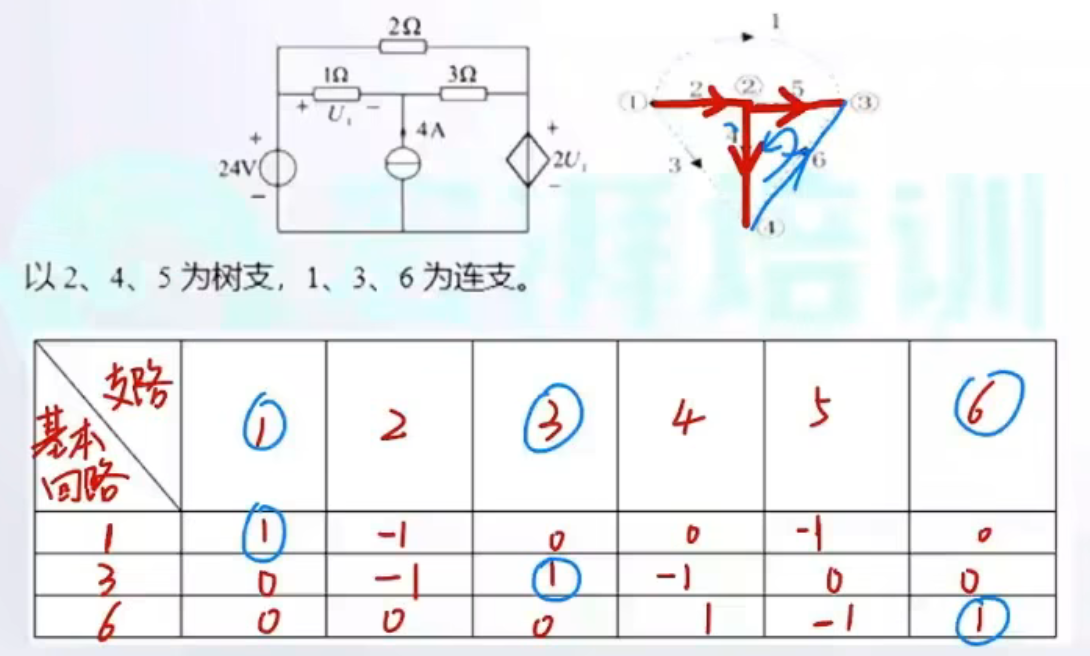 2Ω
1Ω
3Ω
+ U₁ −
4A
+
24V
−
+
2U₁
−
1
① 2 ② 5 ③
3
6
④
以 2、4、5 为树支，1、3、6 为连支。
支路 ① 2 ③ 4 5 ⑥
基本
回路
1 1 -1 0 0 -1 0
3 0 -1 1 -1 0 0
6 0 0 0 1 -1 1